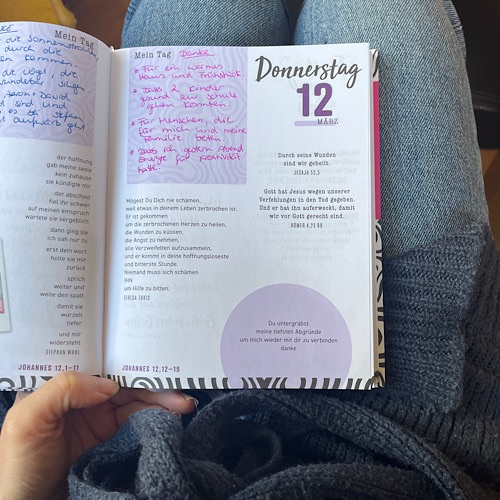 Mein Tag
die Sonnenstrahlen,
durch die
kommen.
die Vögel, die
singen
David
sind und
es bei Stefan
aufwärts geht.
der hoffnung
gab meine seele
kein zuhause
sie kündigte mir
der abschied
fiel ihr schwer
auf meinen einspruch
wartete sie vergeblich
dann ging sie
ich sah nur zu
erst dein wort
holte sie mir
zurück
sprich
weiter und
weite den spalt
damit sie
wurzelt
tiefer
und mir
widersteht
STEPHAN WAHL
JOHANNES 12,1–11
Mein Tag Danke
* Für ein warmes
Haus und Frühstück
* Dass 2 Kinder
gesund zur Schule
gehen konnten.
* Für Menschen, die
für mich und meine
Familie beten.
* Dass ich gestern Abend
Energie für Kreativität
hatte.
Mögest Du Dich nie schämen,
weil etwas in deinem Leben zerbrochen ist.
Er ist gekommen
um die zerbrochenen Herzen zu heilen,
die Wunden zu küssen,
die Angst zu nehmen,
alle Verzweifelten aufzusammeln,
und er kommt in deine hoffnungsloseste
und bitterste Stunde.
Niemand muss sich schämen
IHN
um Hilfe zu bitten.
JOHANNES 12,12–19
Donnerstag
12
MÄRZ
Durch seine Wunden
sind wir geheilt.
JESAJA 53,5
Gott hat Jesus wegen unserer
Verfehlungen in den Tod gegeben.
Und er hat ihn auferweckt, damit
wir vor Gott gerecht sind.
RÖMER 4,25 BB
Du untergräbst
meine tiefsten Abgründe
um mich wieder mit dir zu verbinden
danke